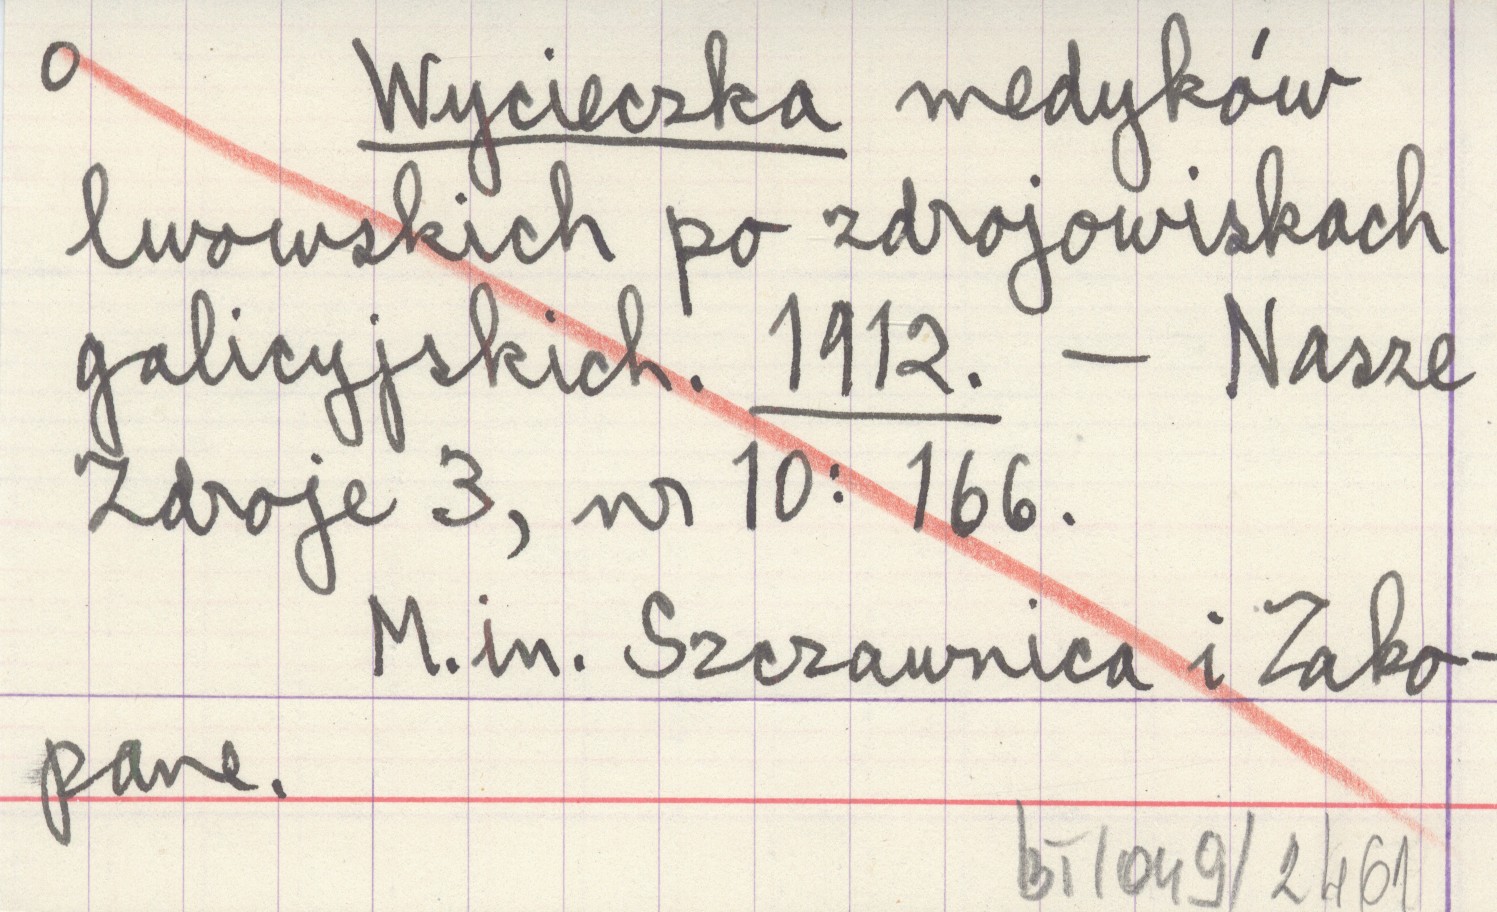 o Wycieczka medyków
lwowskich po zdrojowiskach
galicyjskich. 1912. — Nasze
Zdroje 3, nr 10: 166.
M. in. Szczawnica i Zako-
pane.